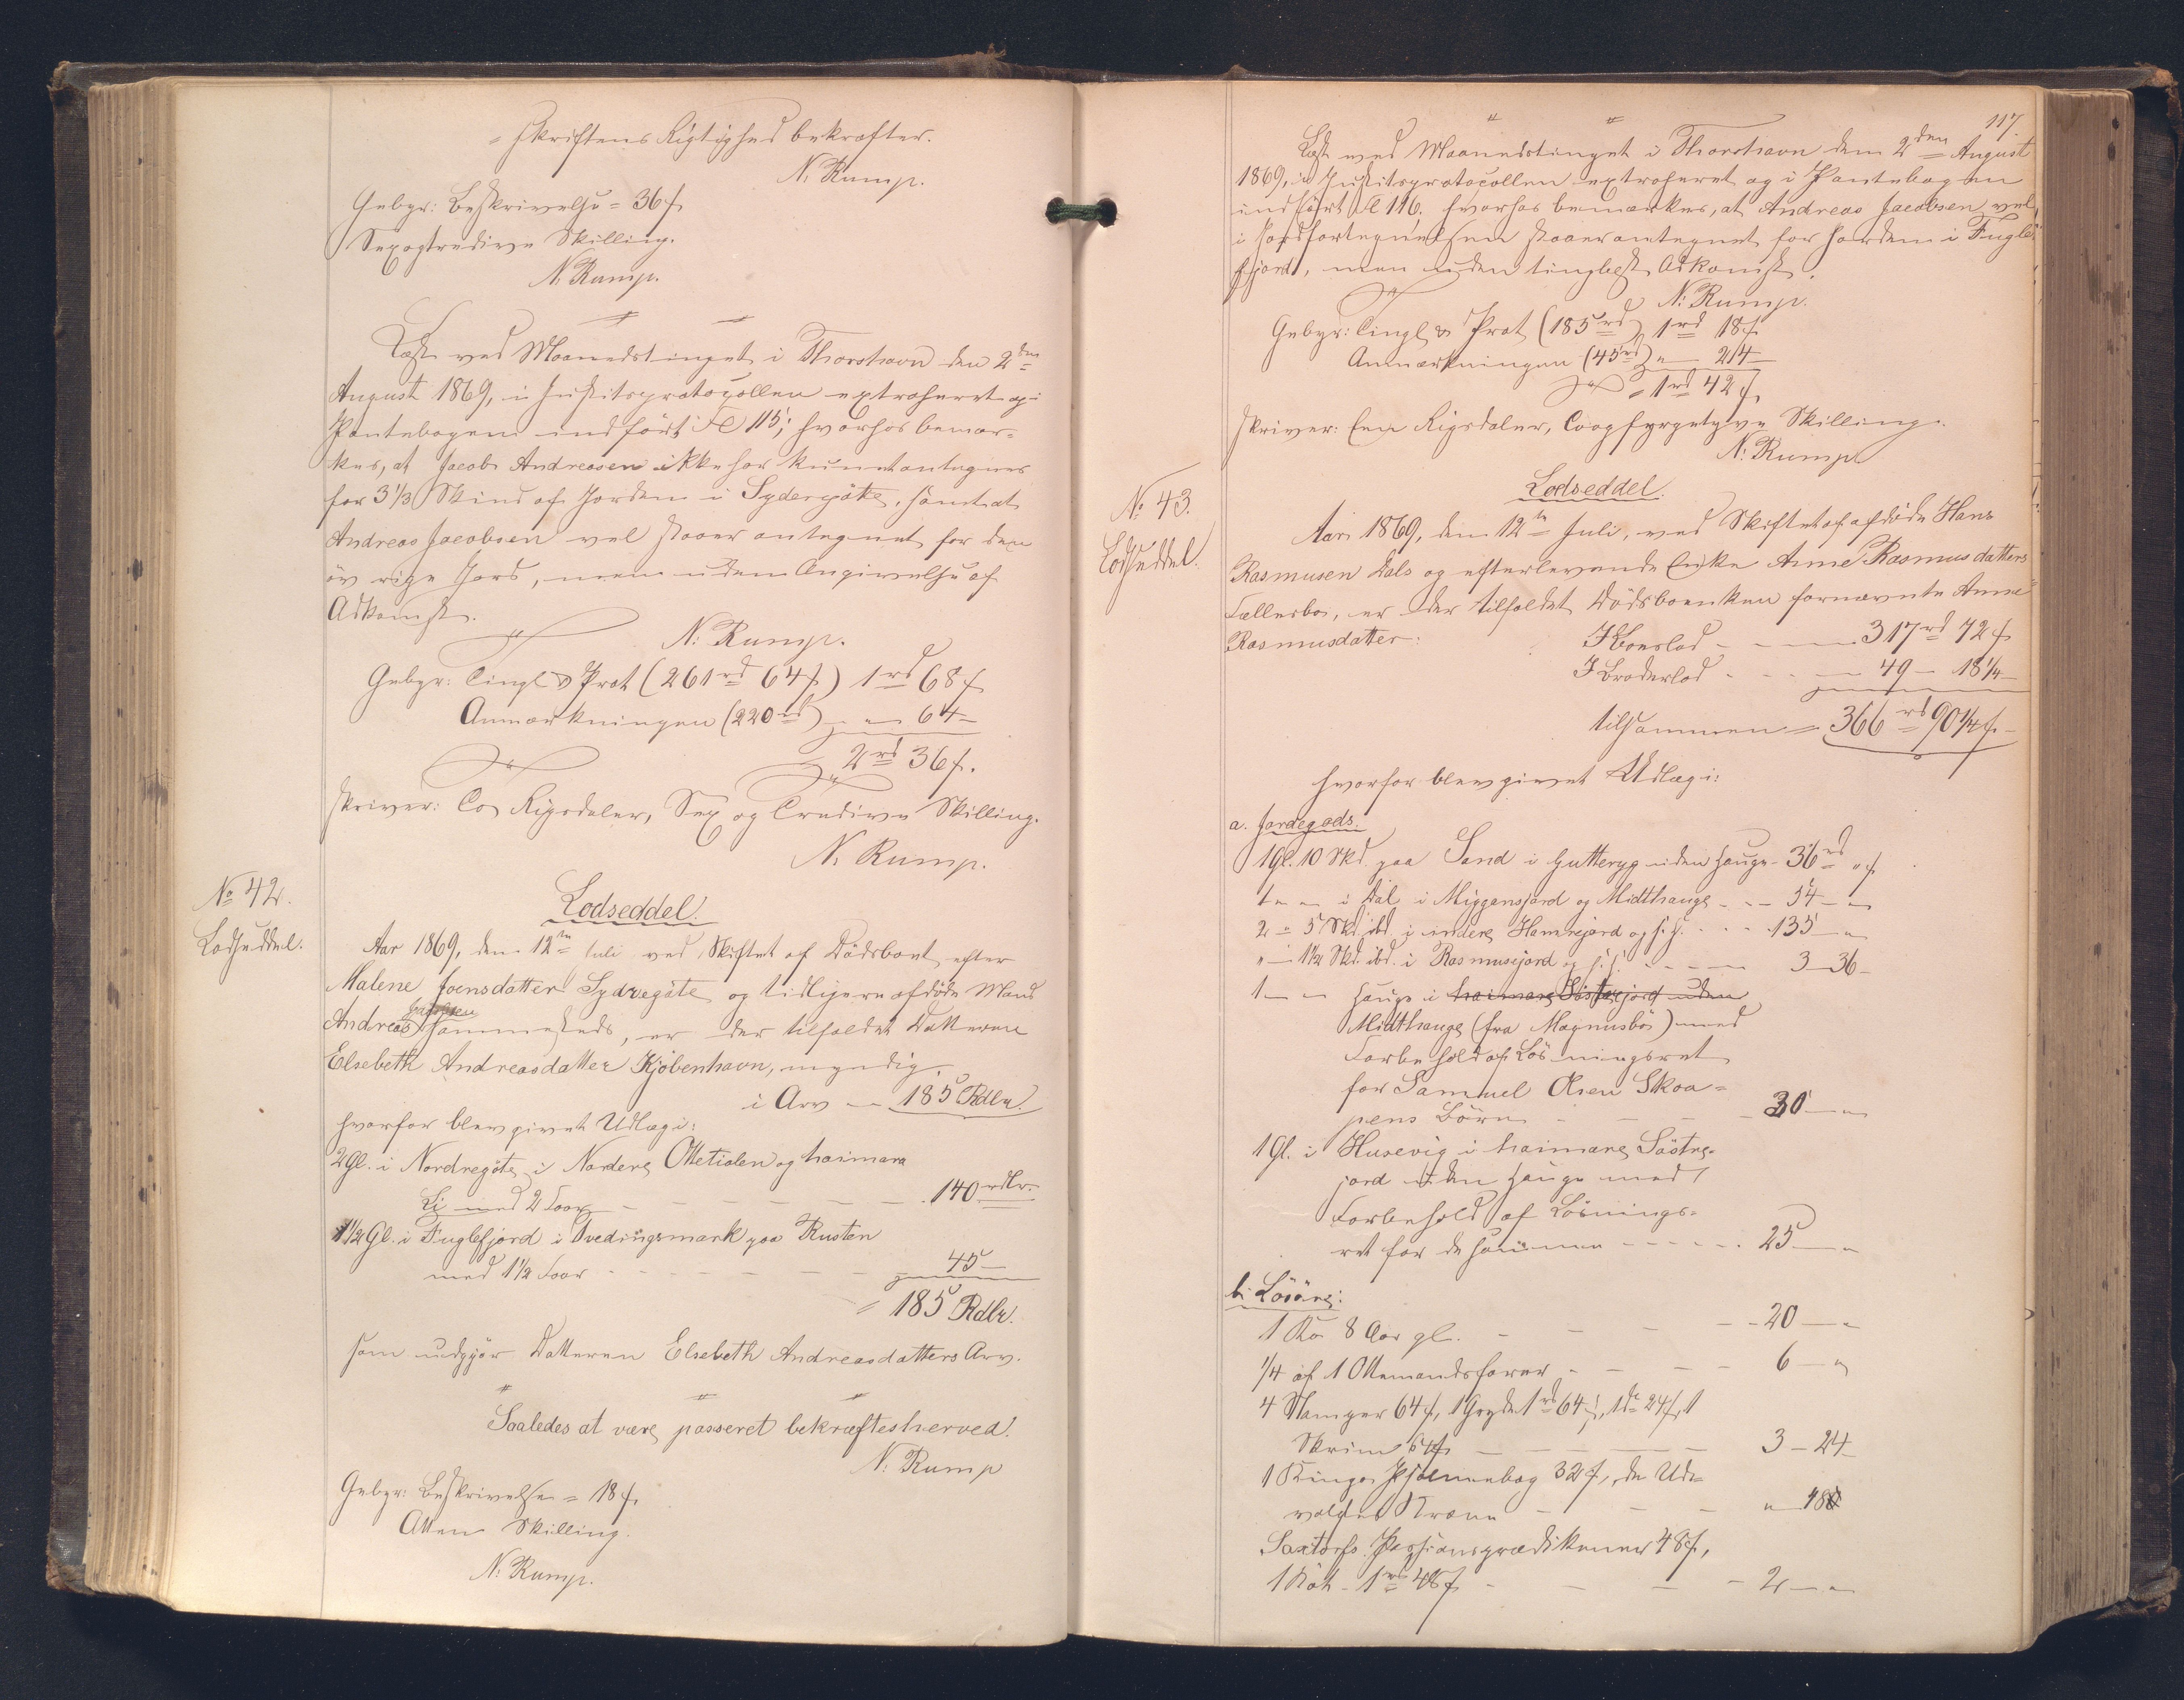 Skriftens Rigtighed bekræfter.
N. Rump.
Gebyr: Beskrivelse = 36 f
Sexogtredive Skilling.
N. Rump.
Læst ved Maanedstinget i Thorshavn den 2den
August 1869, i Justitsprotocollen extraheret og i
Pantebogen indført Fol 115; hvorhos bemær-
kes, at Jacob Andreasen ikke har kunnet antegnes
for 3 1/3 Skind af Jorden i Sydergøte, samt at
Andreas Jacobsen vel staaer antegnet for den
øvrige Jord, men uden Angivelse af
Adkomst.
N. Rump.
Gebyr: Tingl & Prot (261 rd 64 f) 1 rd 68 f
Anmærkningen (220 rd) " 64 -
2 rd 36 f.
skriver: To Rigsdaler, Sex og Tredive Skilling.
N. Rump.
No 42.
Lodseddel.
Lodseddel.
Aar 1869, den 12te Juli ved Skiftet af Dødsboet efter
Malene Joensdatter Sydregøte og tidligere afdøde Mand
Jacobsen
Andreas sammesteds, er der tilfaldet Datteren
Elsebeth Andreasdatter Kjøbenhavn, myndig
i Arv — 185 Rdlr.
hvorfor blev givet Udlæg i:
2 Gl. i Nordregøte i Nordere Ottetialen og haimara
Li med 2 Foer - - - 140 rdlr.
1 1/2 Gl. i Fuglefjord i Tvedingsmark paa Rusten
med 1 1/2 Foer - - - 45 —
= 185 Rdlr.
som udgjør Datteren Elsebeth Andreasdatters Arv.
Saaledes at være passeret bekræftes herved.
N. Rump
Gebyr: Beskrivelse = 18 f.
Atten Skilling.
N. Rump.
117.
Læst ved Maanedstinget i Thorshavn den 2den August
1869, i Justitsprotocollen extraheret og i Pantebogen
indført Fol 116. hvorhos bemærkes, at Andreas Jacobsen vel
i Jordfortegnelsen staaer antegnet for Jorden i Fugle-
fjord, men uden tinglæst Adkomst.
N. Rump.
Gebyr: Tingl & Prot (185 rd) 1 rd 18 f
Anmærkningen (45 rd) " 24
= 1 rd 42 f
skriver: Een Rigsdaler, Toogfyrgetyve Skilling.
N. Rump
No 43.
Lodseddel.
Lodseddel.
Aar 1869, den 12te Juli, ved Skiftet af afdøde Hans
Rasmusen Dals og efterlevende Enke Anne Rasmusdatters
Fællesbo, er der tilfaldet Dødsboenken fornævnte Anne
Rasmusdatter: I Boeslod - - - 317 rd 72 f
I Broderlod - - - 49 - 18 1/4 -
tilsammen = 366 rd 90 1/4 f.
hvorfor blev givet Udlæg i:
a. Jordegods.
1 Gl. 10 Skd. paa Sand i Gutteryg uden Hauge - 36 rd " f
1 - " i Dal i Miggensjord og Midthauge - - 54 - "
2 " 5 Skd ibd. i indere Hamrejord og h. h. - - - 135 - "
" - 1 1/2 Skd. ibd. i Rasmusejord og h. h. - - - 3 - 36 -
1 - " Hauge i haimare Søstrejord uden
Midthauge (fra Magnusbø) med
Forbehold af Løsningsret
for Samuel Olsen Skoa-
pens Børn - - - 30 — "
1 Gl. i Husevig i haimare Søstre-
jord uden Hauge med
Forbehold af Løsnings-
ret for de samme - - - 25 — "
b. Løsøre:
1 Ko 8 Aar gl. - - - 20 — "
1/4 af 1 Ottemandsfarer - - - 6 — "
4 Stamper 64 f, 1 Gryde 1 rd 64 f, 1 do 24 f, 1
Skrin 64 f - - - 3 - 24 -
1 Kingos Psalmebog 32 f, de Ud-
valgtes Krone - - - " 48
Saxtorfs Passionsprædikener 48 f,
1 Køt - 1 rd 48 f - - - 2 — "